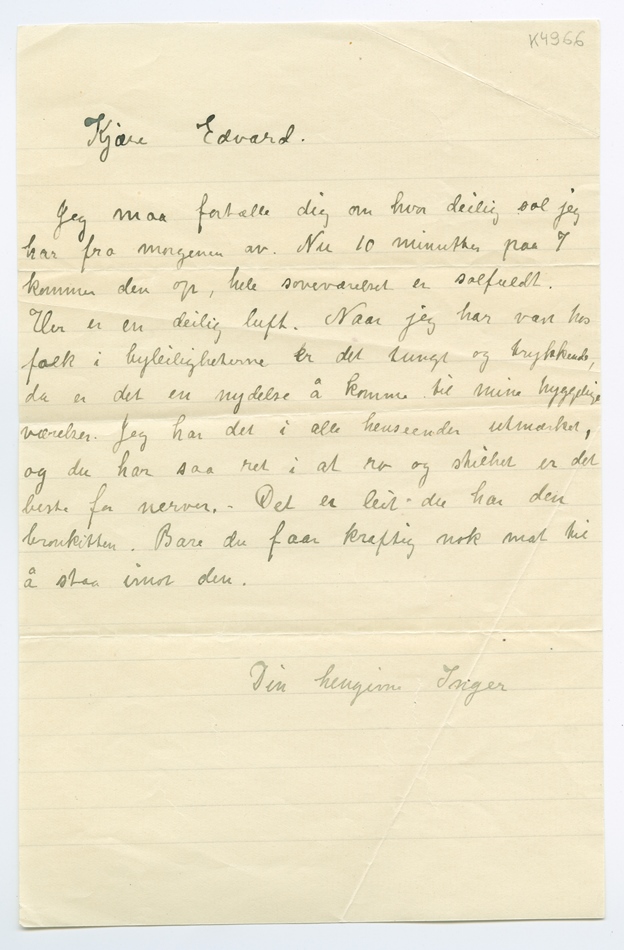 K4966
Kjære Edvard.
Jeg maa fortælle dig om hvor deilig sol jeg
har fra morgenen av. Nu 10 minutter paa 7
kommer den op, hele soveværelset er solfuldt.
Her er en deilig luft. Naar jeg har vært hos
folk i byleilighetene er det tungt og trykkende,
da er det en nydelse å komme til mine hyggelige
værelser. Jeg har det i alle henseender utmærket,
og du har saa ret i at ro og stilhet er det
beste for nerver. – Det er leit du har den
bronkitten. Bare du faar kraftig nok mat til
å staa imot den.
Din hengivne Inger